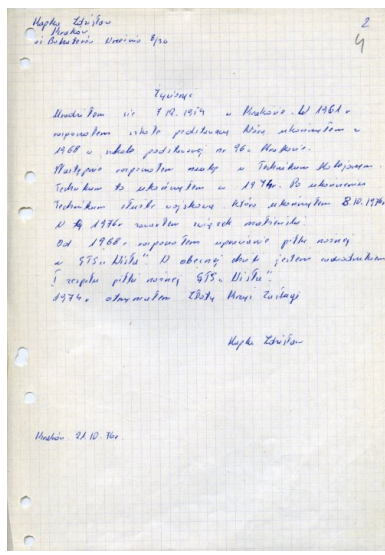 Kapka Zdzisław
Kraków
2
4
Życiorys
Urodziłem się 7 XII. 1954 w Krakowie. W 1961 r
rozpocząłem szkołę podstawową którą ukończyłem w
1968 w szkole podstawowej nr 95 w Krakowie.
Następnie rozpocząłem naukę w Technikum Kolejowym.
Technikum to ukończyłem w 1974r. Po ukończeniu
Technikum służbę wojskową którą ukończyłem 8.10.1976
W 1976r zawarłem związek małżeński
Od 1968r rozpocząłem uprawianie piłki nożnej
w GTS "Wisła". W obecnej chwili jestem zawodnikiem
I zespołu piłki nożnej GTS "Wisła".
1974r otrzymałem Złoty Krzyż Zasługi
Kapka Zdzisław
Kraków. 21.10.76r.